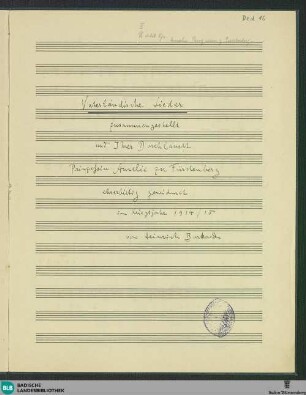 Don 16
Vaterländische Lieder
zusammengestellt
und Ihrer Durchlaucht
Prinzessin Amelie zu Fürstenberg
ehrerbietig gewidmet
im Kriegsjahr 1914/15
von Heinrich
BLB
BADISCHE
LANDESBIBLIOTHEK
Baden-Württemberg